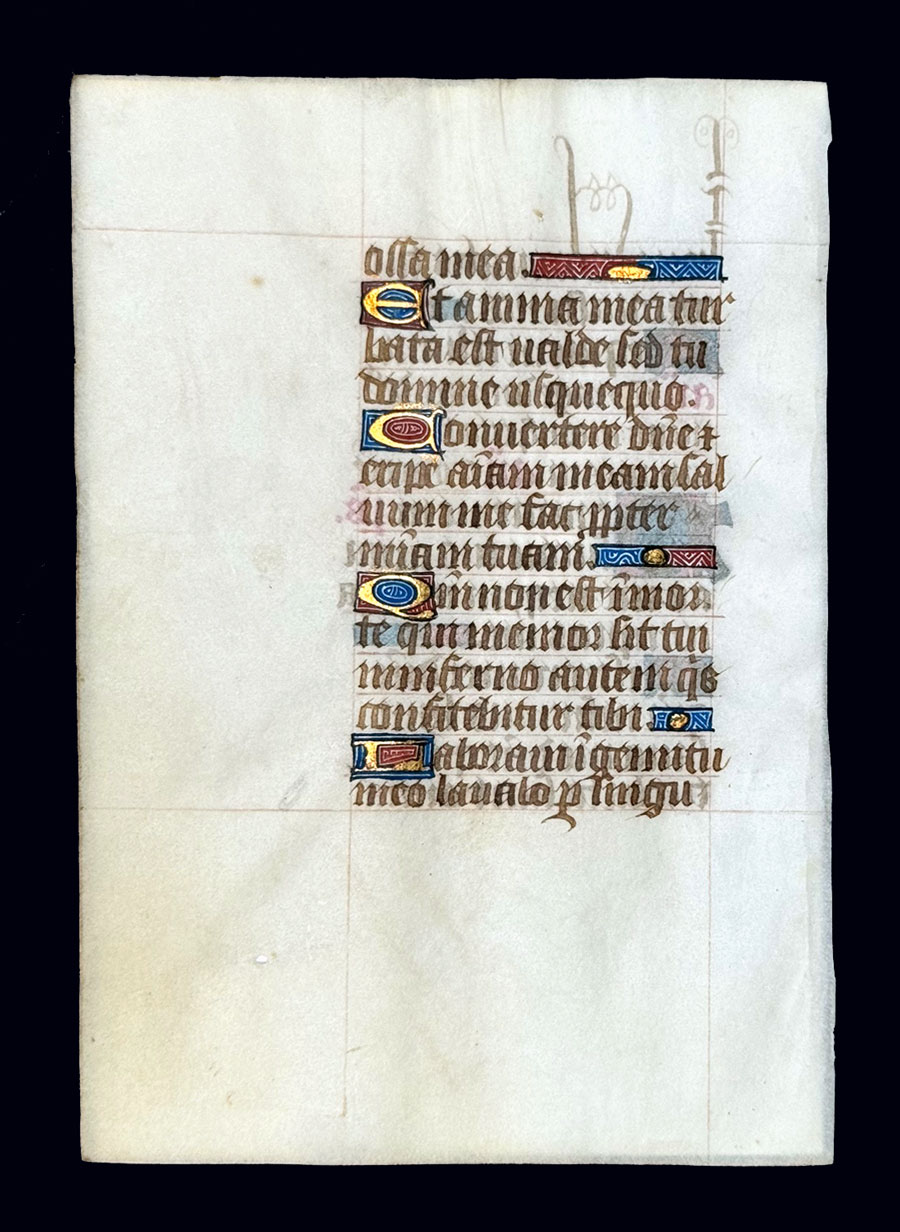 ossa mea.
Et anima mea tur
bata est ualde sed tu
domine usquequo.
Conuertere dn̄e ⁊
eripe aīam meam sal
uum me fac ꝓpter
mīam tuam.
Qm̄ non est ī mor
te qui memor sit tui
in inferno autem qͥs
confitebitur tibi
Laboraui ī gemitu
meo lauabo ꝑ singu